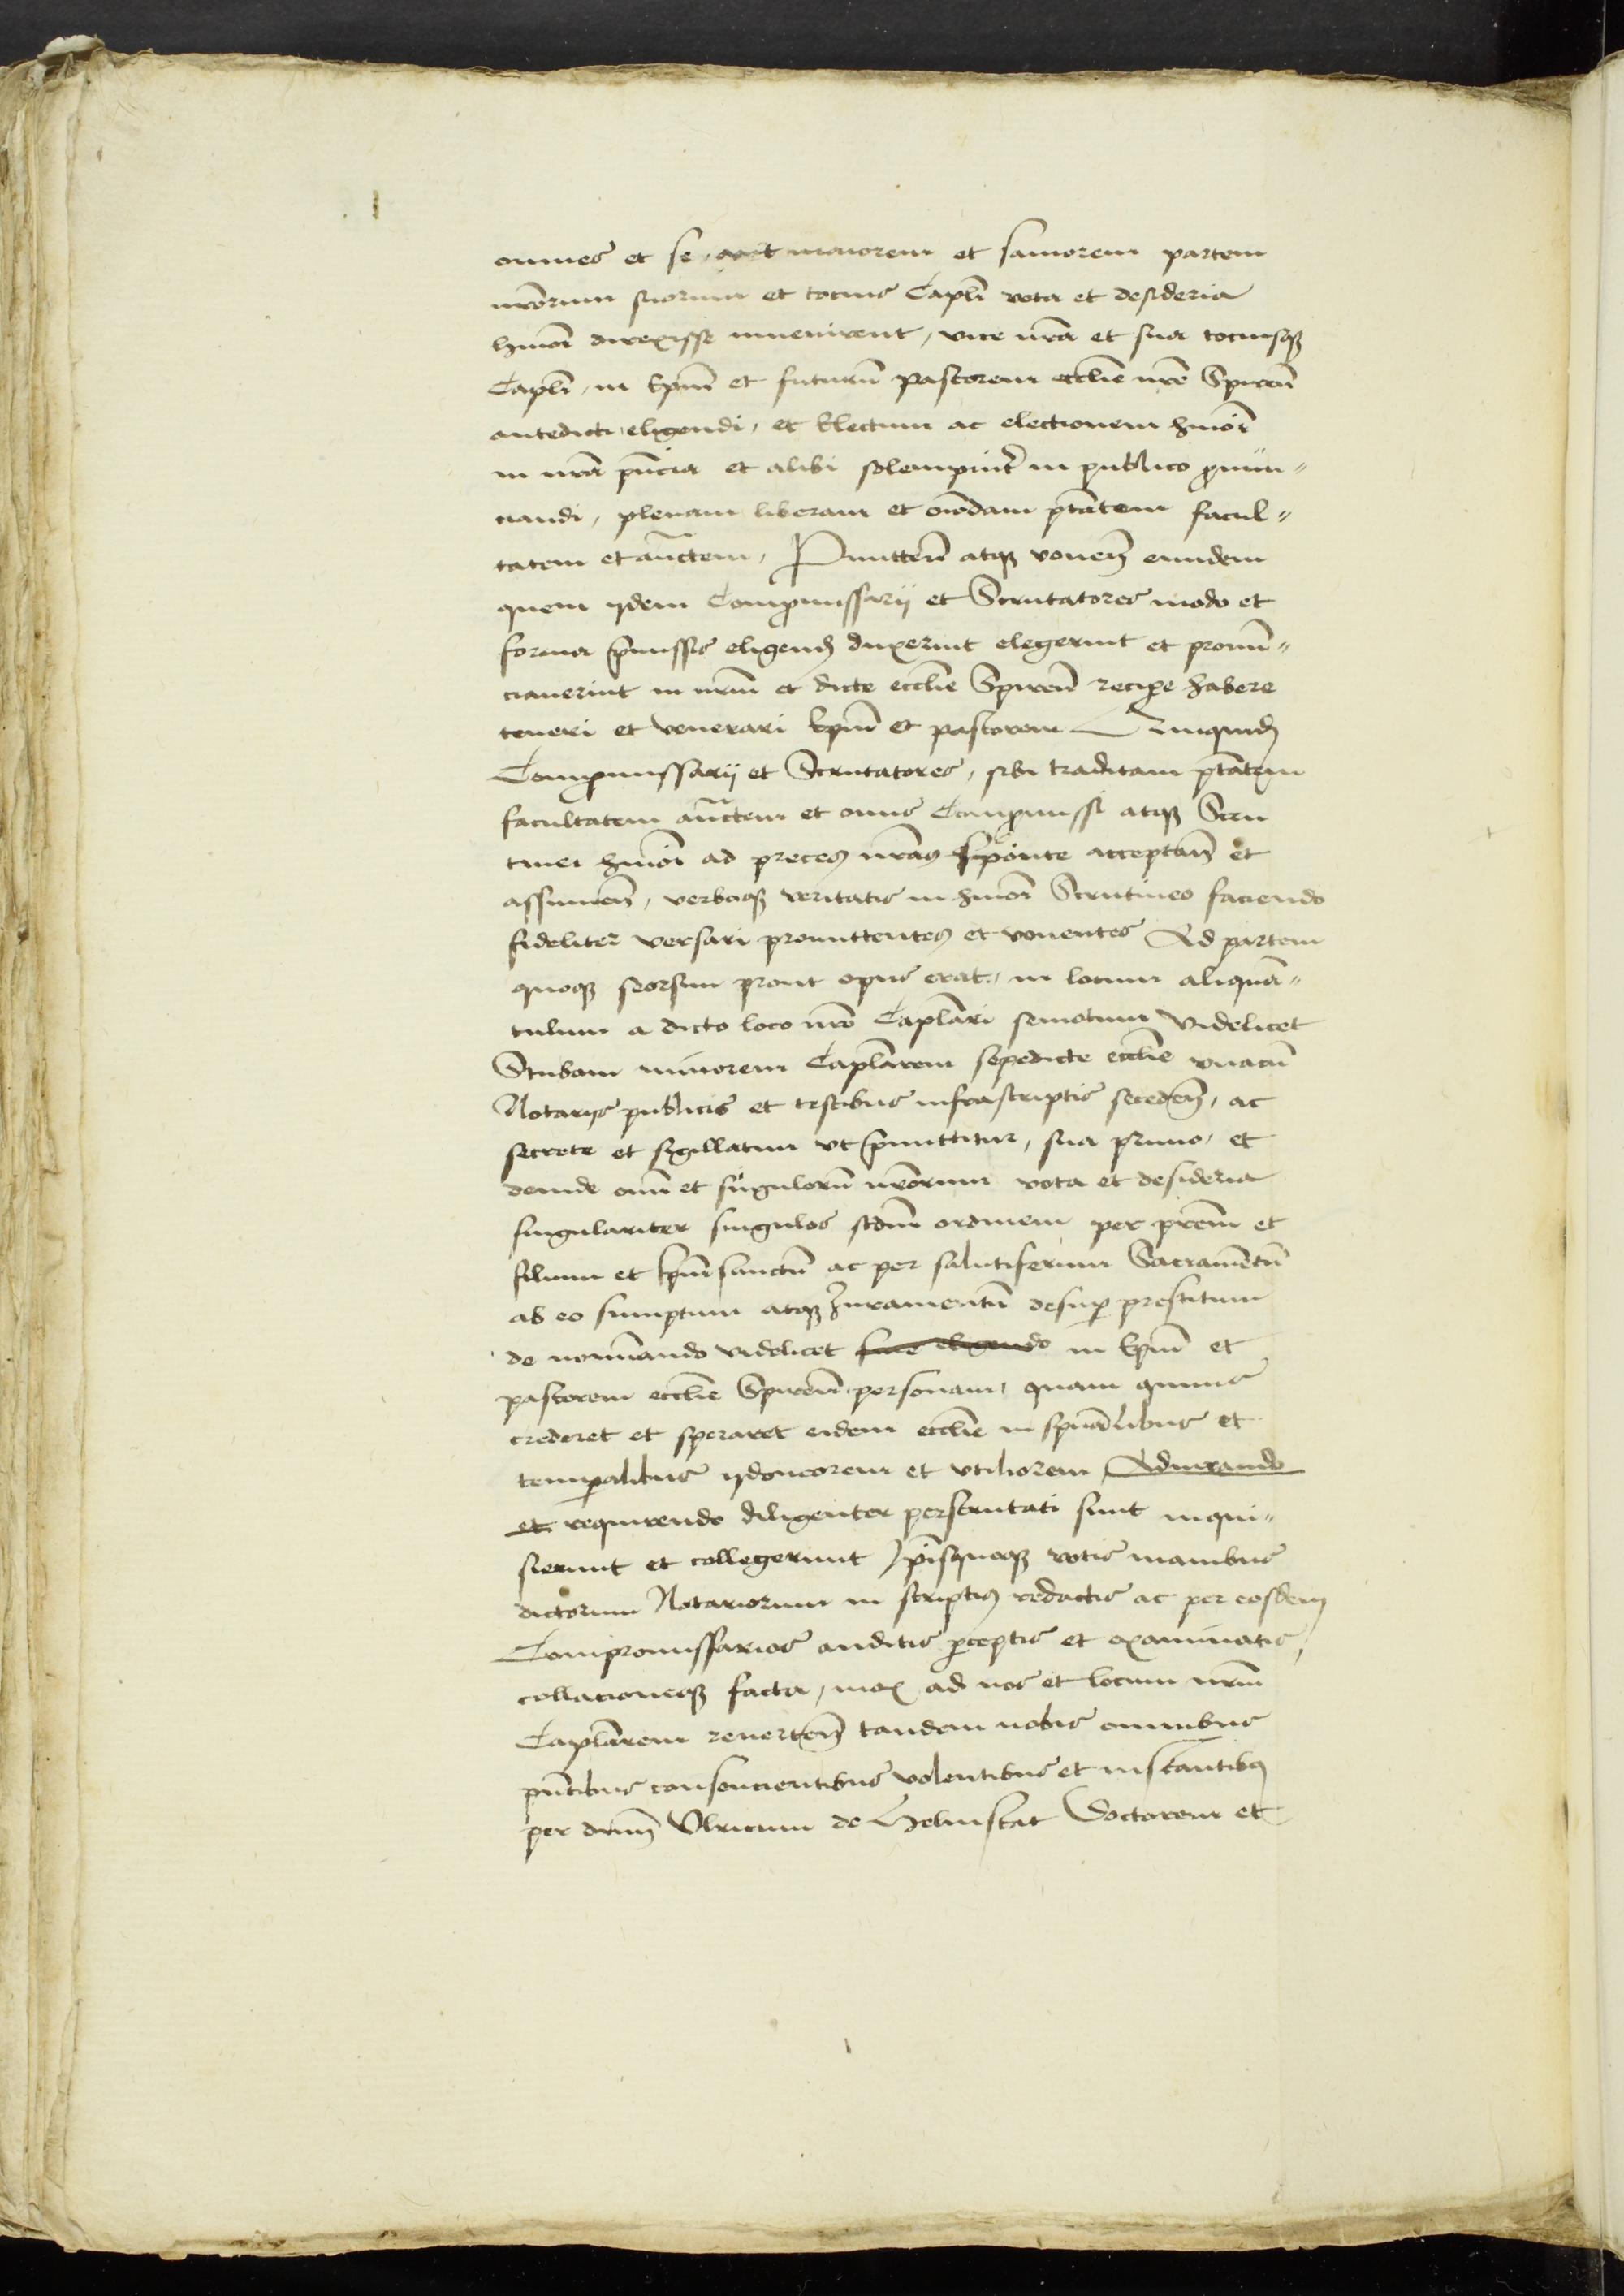 omnes et se aut maiorem et saniorem partem
nr̄orum suorum et tocius Capli vota et desideria
hmōi direxisse invenirent, vice nr̄a et sua tociusqȝ
Capli, in Ep̄m et futurū pastorem eccl̄ie nr̄e Spireñ
antedicti eligendi, et Electum ac electionem hmōi
in nr̄a pn̄cia et alibi solempnit̄ in publico pnūn-
ciandi, plenam liberam et oīodam ptātem facul-
tatem et auctem, Pmitteñ atqȝ voueñ eundem
quem ijdem Compromissarij et Scrutatores modo et
forma pmissis eligend duxerint elegerint et pronūn-
ciauerint in nr̄m et dicte eccl̄ie Spireñ recipe habere
teneri et venerari Ep̄m et pastorem Quiquid
Compromissarij et Scrutatores, sibi traditam ptātem
facultatem auctem et onus Compromissi atqȝ Scru
tinei hmōi ad preces nr̄as sponte acceptañ et
assumeñ, verboqȝ veritatis in hmōi Scrutineo faciendo
fideliter versari promittentes et vouentes Ad partem
quoqȝ seorsim prout opus erat, in locum aliquā-
tulum a dicto loco nr̄o Caplāri semotum videlicet
Stubam minorem Caplārem sepedicte eccl̄ie vnacū
Notarijs publicis et testibus infrascriptis secedeñ, ac
secrete et sigillatim vt pmittitur, sua primo, et
deinde om̄ et singulorū nr̄orum vota et desideria
singulariter singulos scdm̄ ordinem per prēm et
filium et sp̄m sanctū ac per salutiferum Sacramentū
ab eo sumptum atqȝ Iuramentū desup prestitum
de nominando videlicet siue eligendo in Ep̄m et
pastorem eccl̄ie Spireñ personam, quam quiuis
crederet et speraret eidem eccl̄ie in spūalibus et
temporalibus ijdoneorem et vtiliorem Adiurando
et requirendo diligenter perscrutati sunt inqui-
sierunt et collegerunt, ip̄isquoqȝ votis manibus
dictorum Notariorum in scriptis redactis ac per eosdem
Compromissarios auditis pceptis et examinatis,
collacioneqȝ facta, mox ad nos et locum nr̄m
Caplārem reuerteñ tandem nobis omnibus
pn̄tibus consencientibus volentibus et instantibus
per dnm̄ Vlricum de Helmstat Doctorem et